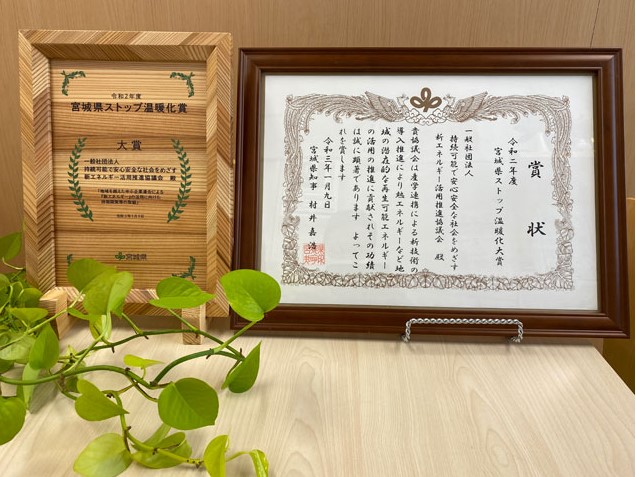 令和2年度
宮城県ストップ温暖化賞
大賞
一般社団法人
持続可能で安心安全な社会をめざす
新エネルギー活用推進協議会 殿
宮城県
賞状
令和二年度
宮城県ストップ温暖化大賞
一般社団法人
持続可能で安心安全な社会をめざす
新エネルギー活用推進協議会 殿
貴協議会は産学連携による新技術の
導入推進により熱エネルギーなど地
域の潜在的な再生可能エネルギー
の活用の推進に貢献されその功績
は誠に顕著であります よってこ
れを賞します
令和三年一月九日
宮城県知事 村井嘉浩